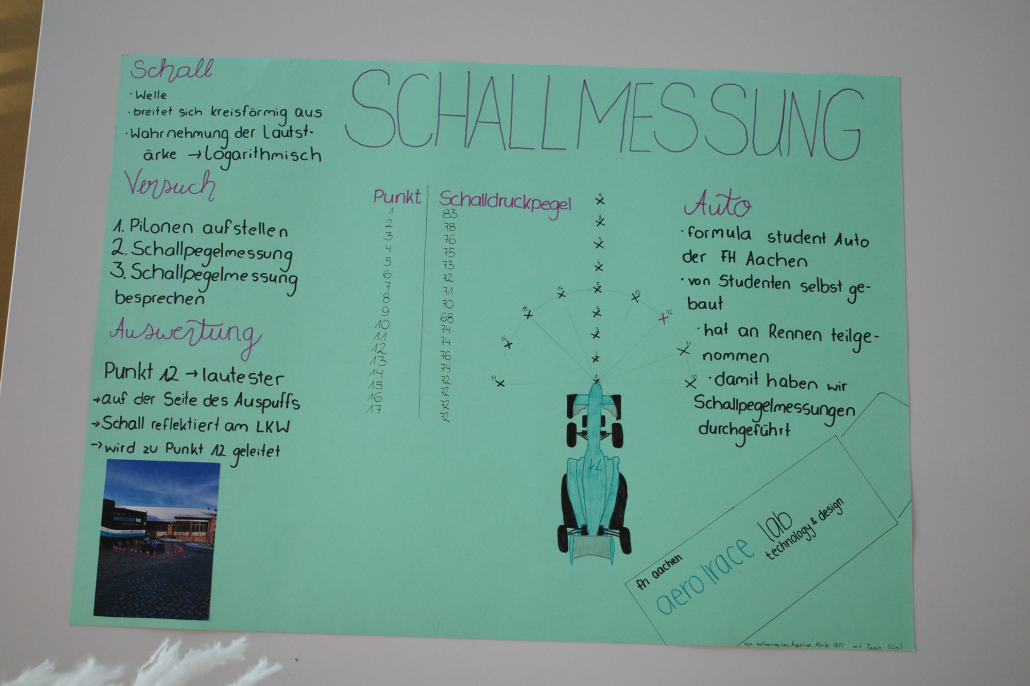 SCHALLMESSUNG
Schall
· Welle
· breitet sich kreisförmig aus
· Wahrnehmung der Lautst-
ärke → Logarithmisch
Versuch
1. Pilonen aufstellen
2. Schallpegelmessung
3. Schallpegelmessung
besprechen
Auswertung
Punkt 12 → lautester
→ auf der Seite des Auspuffs
→ Schall reflektiert am LKW
→ wird zu Punkt 12 geleitet
Punkt Schalldruckpegel
1 83
2 78
3 76
4 75
5 73
6 72
7 71
8 70
9 68
10 74
11 74
12 76
13 74
14 72
15 72
16 72
17 72
Auto
· formula student Auto
der FH Aachen
· von Studenten selbst ge-
baut
· hat an Rennen teilge-
nommen
· damit haben wir
Schallpegelmessungen
durchgeführt
fh aachen
aero|race lab
technology & design